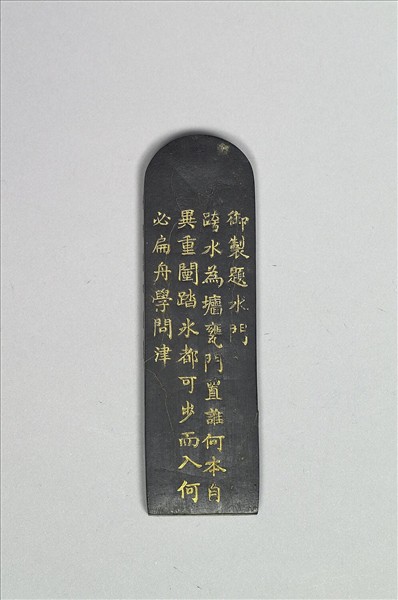 御製題水門
跨水為墻甕門置誰何本自
異重闉踏氷都可步而入何
必扁舟學問津